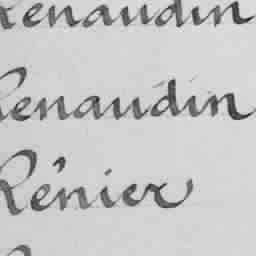 Renaudin
Renaudin
Rénier